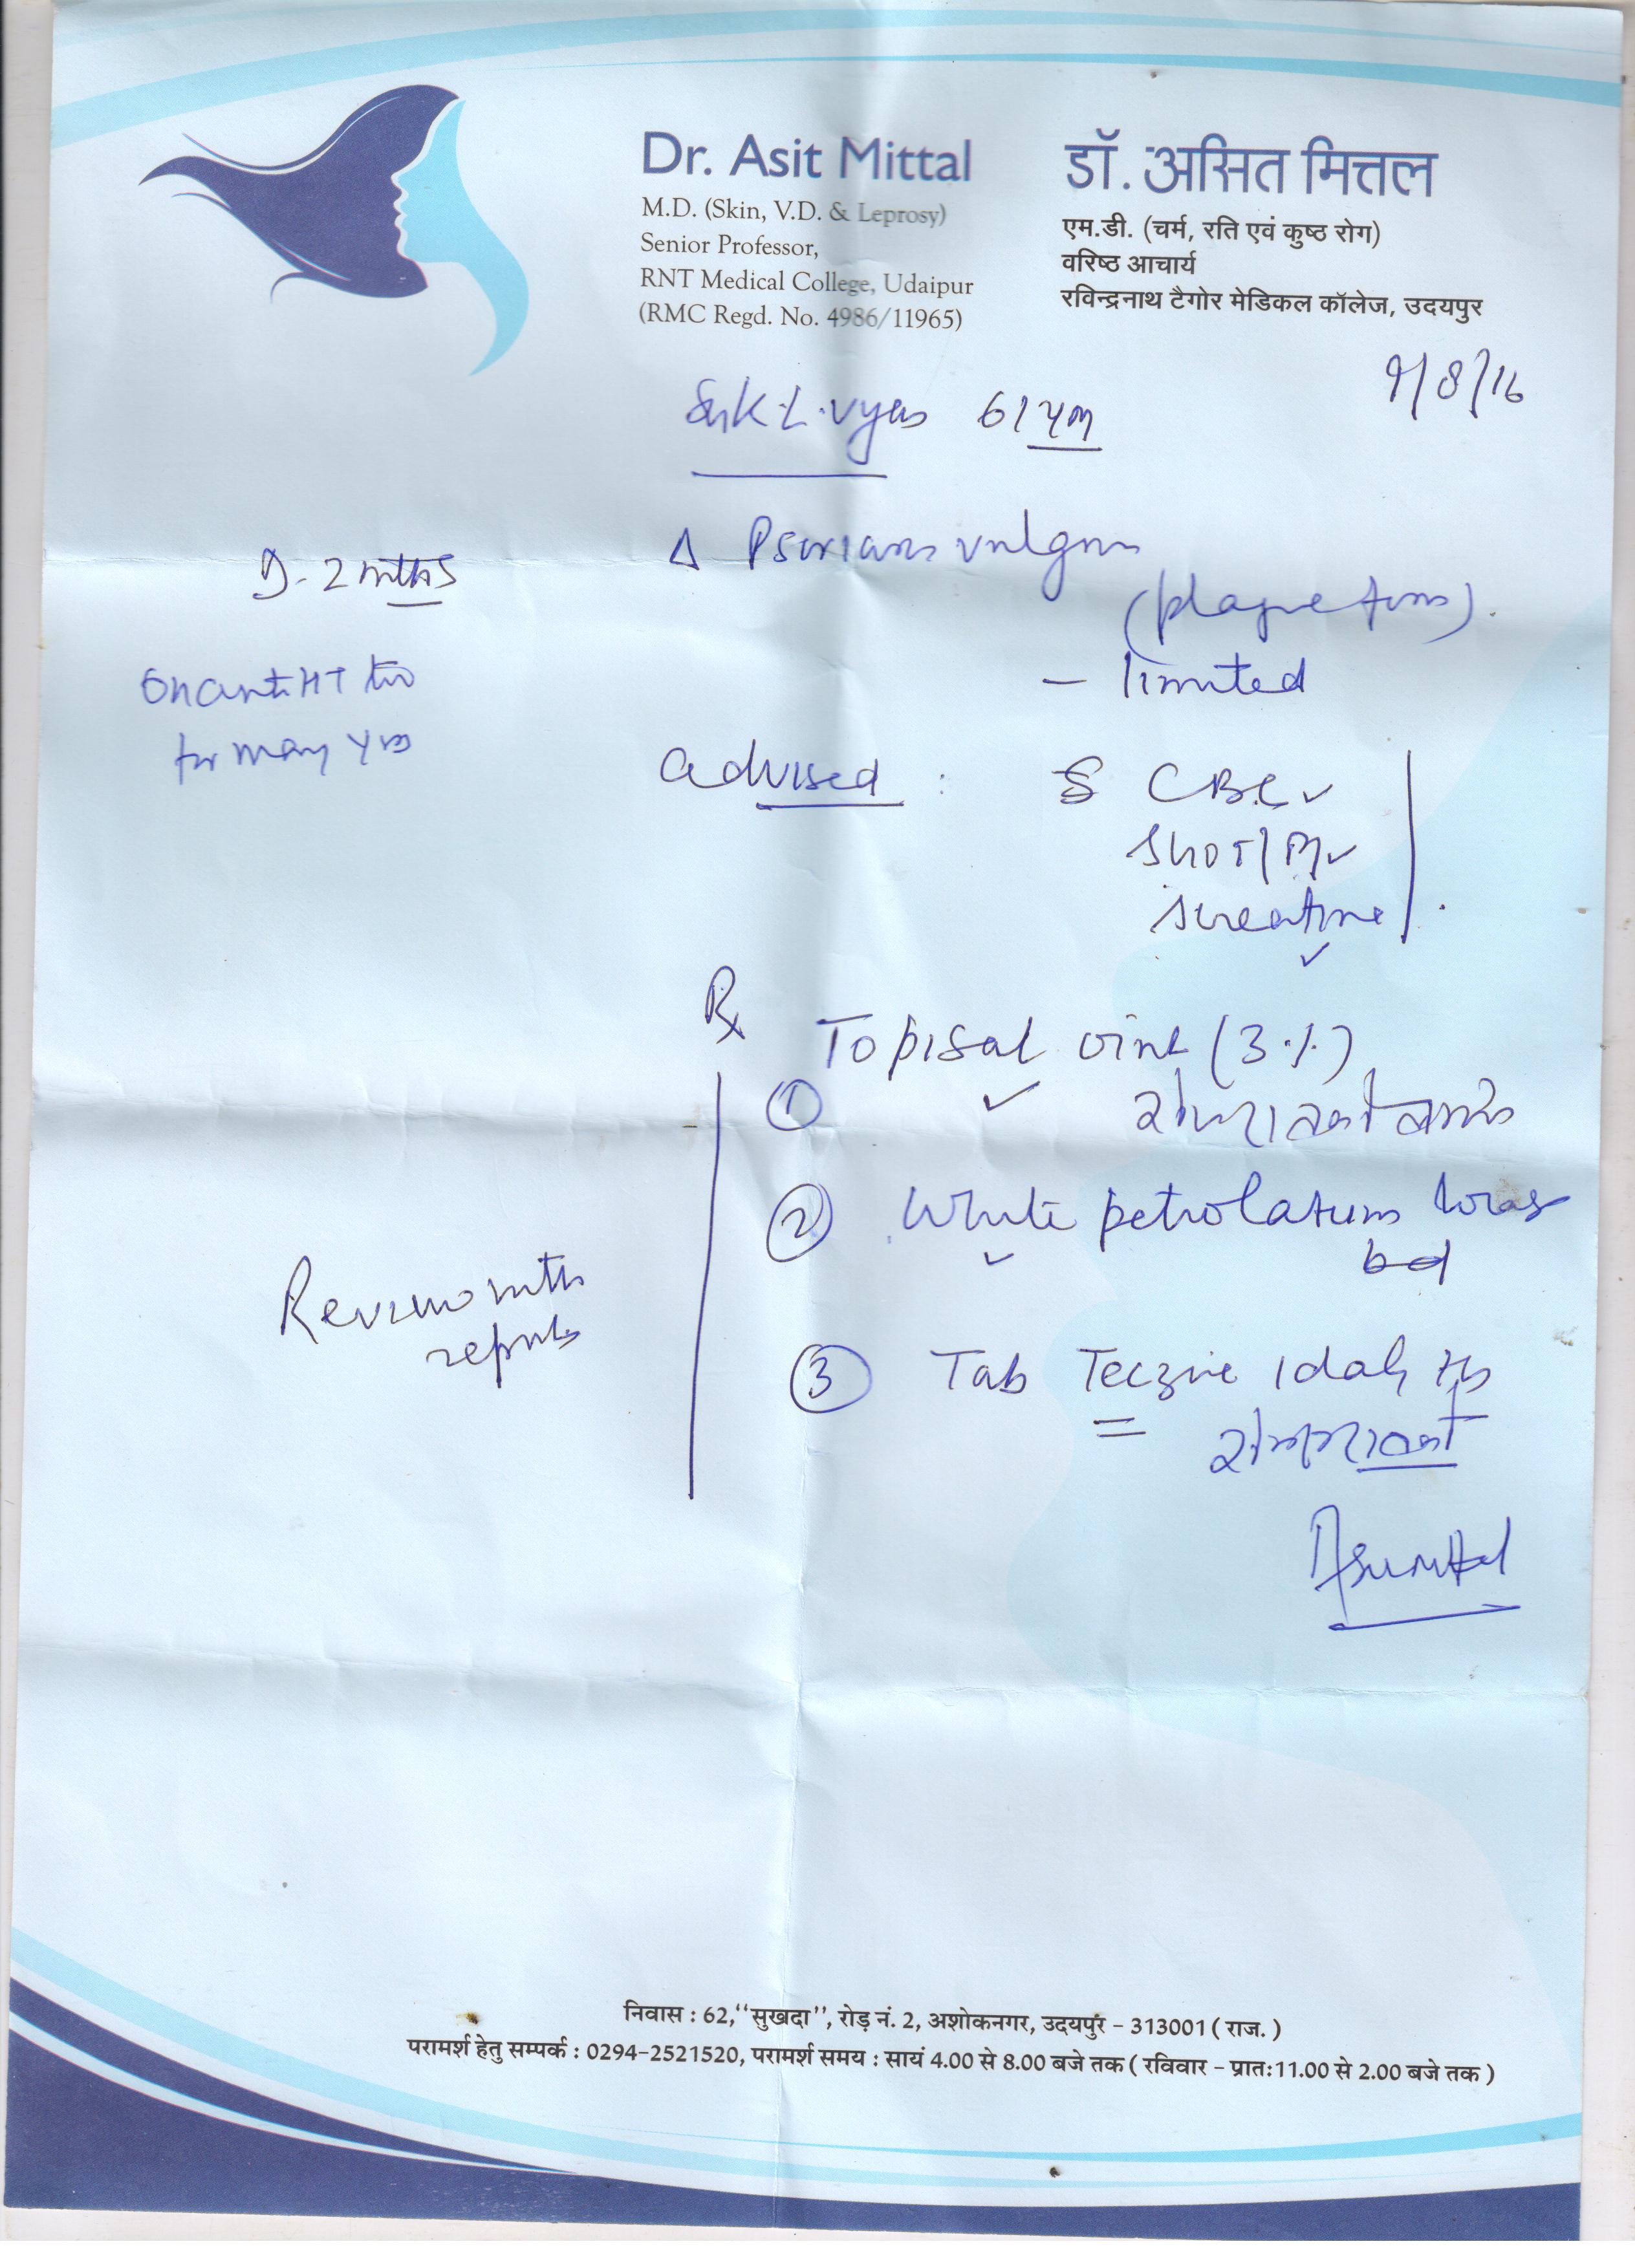 Dr. Asit Mittal
M.D. (Skin, V.D. & Leprosy)
Senior Professor,
RNT Medical College, Udaipur
(RMC Regd. No. 4986/11965)
डॉ. असित मित्तल
एम.डी. (चर्म, रति एवं कुष्ठ रोग)
वरिष्ठ आचार्य
रविन्द्रनाथ टैगोर मेडिकल कॉलेज, उदयपुर
9/8/16
K L Vyas 61 ym
D- 2 mths
Δ Psoriasis vulgaris
(plaque form).
- limited
On anti HT
for many yrs
advised : S CBC
SGOT/PT
S creatine
Rx
Topisal oint (3%)
①
② White petrolatum
bd
③ Tab Teczine 1 daily
Review with
reports
निवास : 62, "सुखदा", रोड़ नं. 2, अशोकनगर, उदयपुर - 313001 ( राज. )
परामर्श हेतु सम्पर्क : 0294-2521520, परामर्श समय : सायं 4.00 से 8.00 बजे तक ( रविवार - प्रातः11.00 से 2.00 बजे तक )